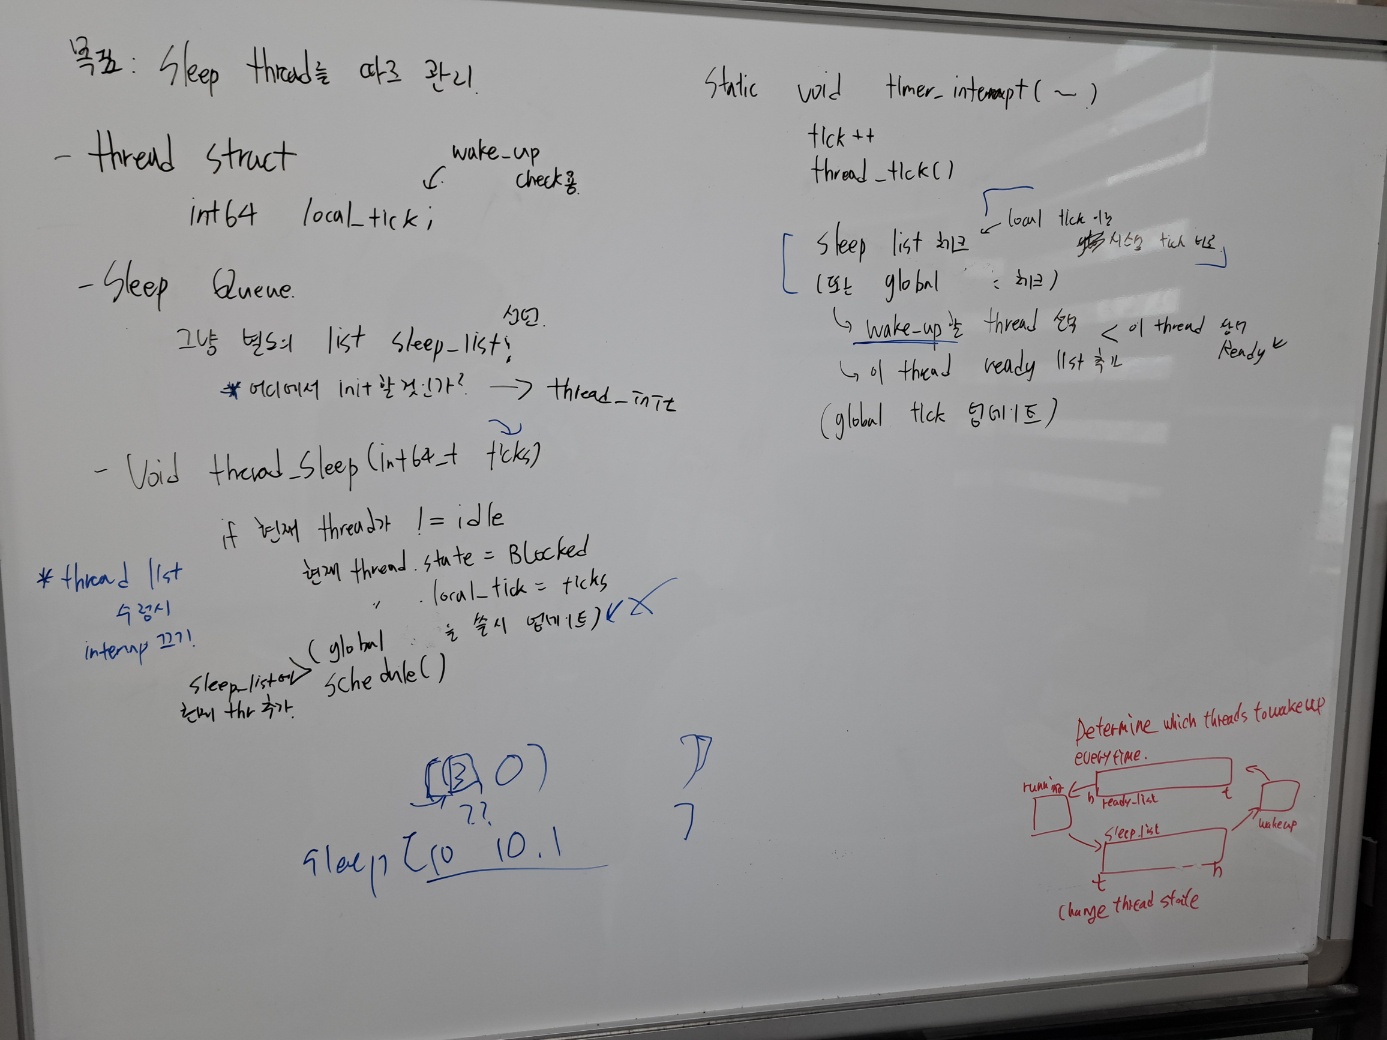 목표: Sleep thread를 따로 관리.
- thread struct
wake_up
check용
int64 local_tick;
- Sleep Queue.
선언.
그냥 별도의 list sleep_list;
* 어디에서 init 할 것인가? → thread_init
- Void thread_Sleep(int64_t ticks)
if 현재 thread가 != idle
현재 thread.state = Blocked
〃 .local_tick = ticks
(global 을 쓸시 업데이트)
schedule()
* thread list
수정시
interrup 끄기!
sleep_list에
현재 thr 추가.
((3, 0)
??
sleep [10 10.1
static void timer_interrupt(~)
tick++
thread_tick()
sleep list 체크
local tick 이랑
시스템 tick 비교
(또는 global : 체크)
↳ wake_up 할 thread 존재 < 이 thread 상태
Ready
↳ 이 thread ready list 추가
(global tick 업데이트)
Determine which threads to wake up
every time.
running
h ready_list t
wakeup
sleep_list
t h
Change thread state